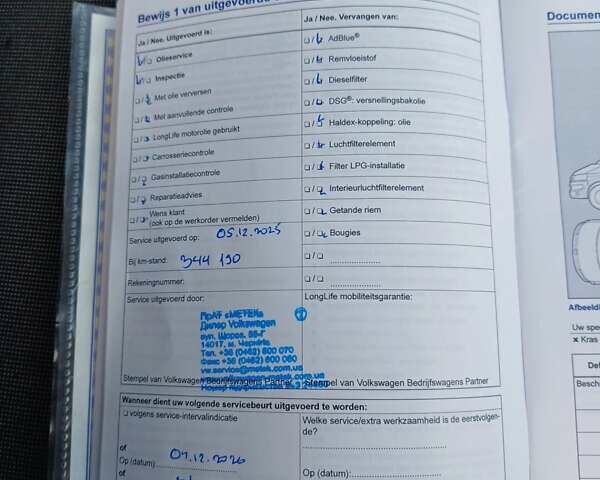 Bewijs 1 van uitgevoerde
Ja / Nee. Uitgevoerd is:
Olieservice
Inspectie
Met olie verversen
Met aanvullende controle
LongLife motorolie gebruikt
Carrosseriecontrole
Gasinstallatiecontrole
Reparatieadvies
Wens klant
(ook op de werkorder vermelden)
Service uitgevoerd op: 05.12.2025
Bij km-stand: 344 190
Rekeningnummer:
Service uitgevoerd door:
ПрАТ «МЕТЕК»
Дилер Volkswagen
14017, м. Чернігів
Тел. +38 (0462) 600 070
Факс +38 (0462) 600 060
vw.service@metek.com.ua
Stempel van Volkswagen Bedrijfswagens Partner
Ja / Nee. Vervangen van:
AdBlue®
Remvloeistof
Dieselfilter
DSG®: versnellingsbakolie
Haldex-koppeling: olie
Luchtfilterelement
Filter LPG-installatie
Interieurluchtfilterelement
Getande riem
Bougies
LongLife mobiliteitsgarantie:
Stempel van Volkswagen Bedrijfswagens Partner
Wanneer dient uw volgende servicebeurt uitgevoerd te worden:
volgens service-intervalindicatie
of
Op (datum): 04.12.2026
of
Welke service/extra werkzaamheid is de eerstvolgen-
de?
Op (datum):
Documen
Afbeeldi
Uw spe
× Kras
Def
Beschr